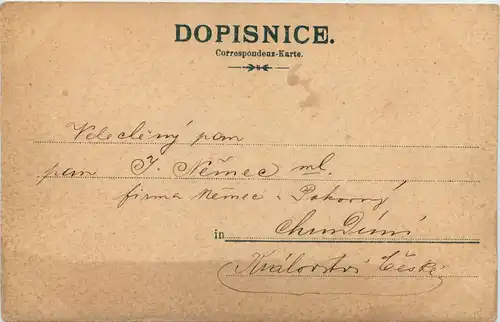 DOPISNICE.
Correspondenz-Karte.
Velectěný pan
pan J. Němec ml.
firma Němec & Pokorný
in Chrudimi
Království České